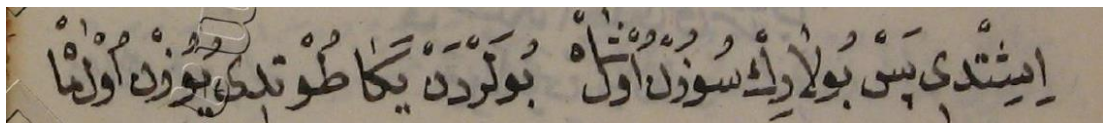 اِيشِتْدى پَسْ بُولارِڭ سُوزِنْ اُوْل شَاهْ بُولَرْدَنْ يَكَا طُوتدى يُوزِنْ اُوْل مَاهْ